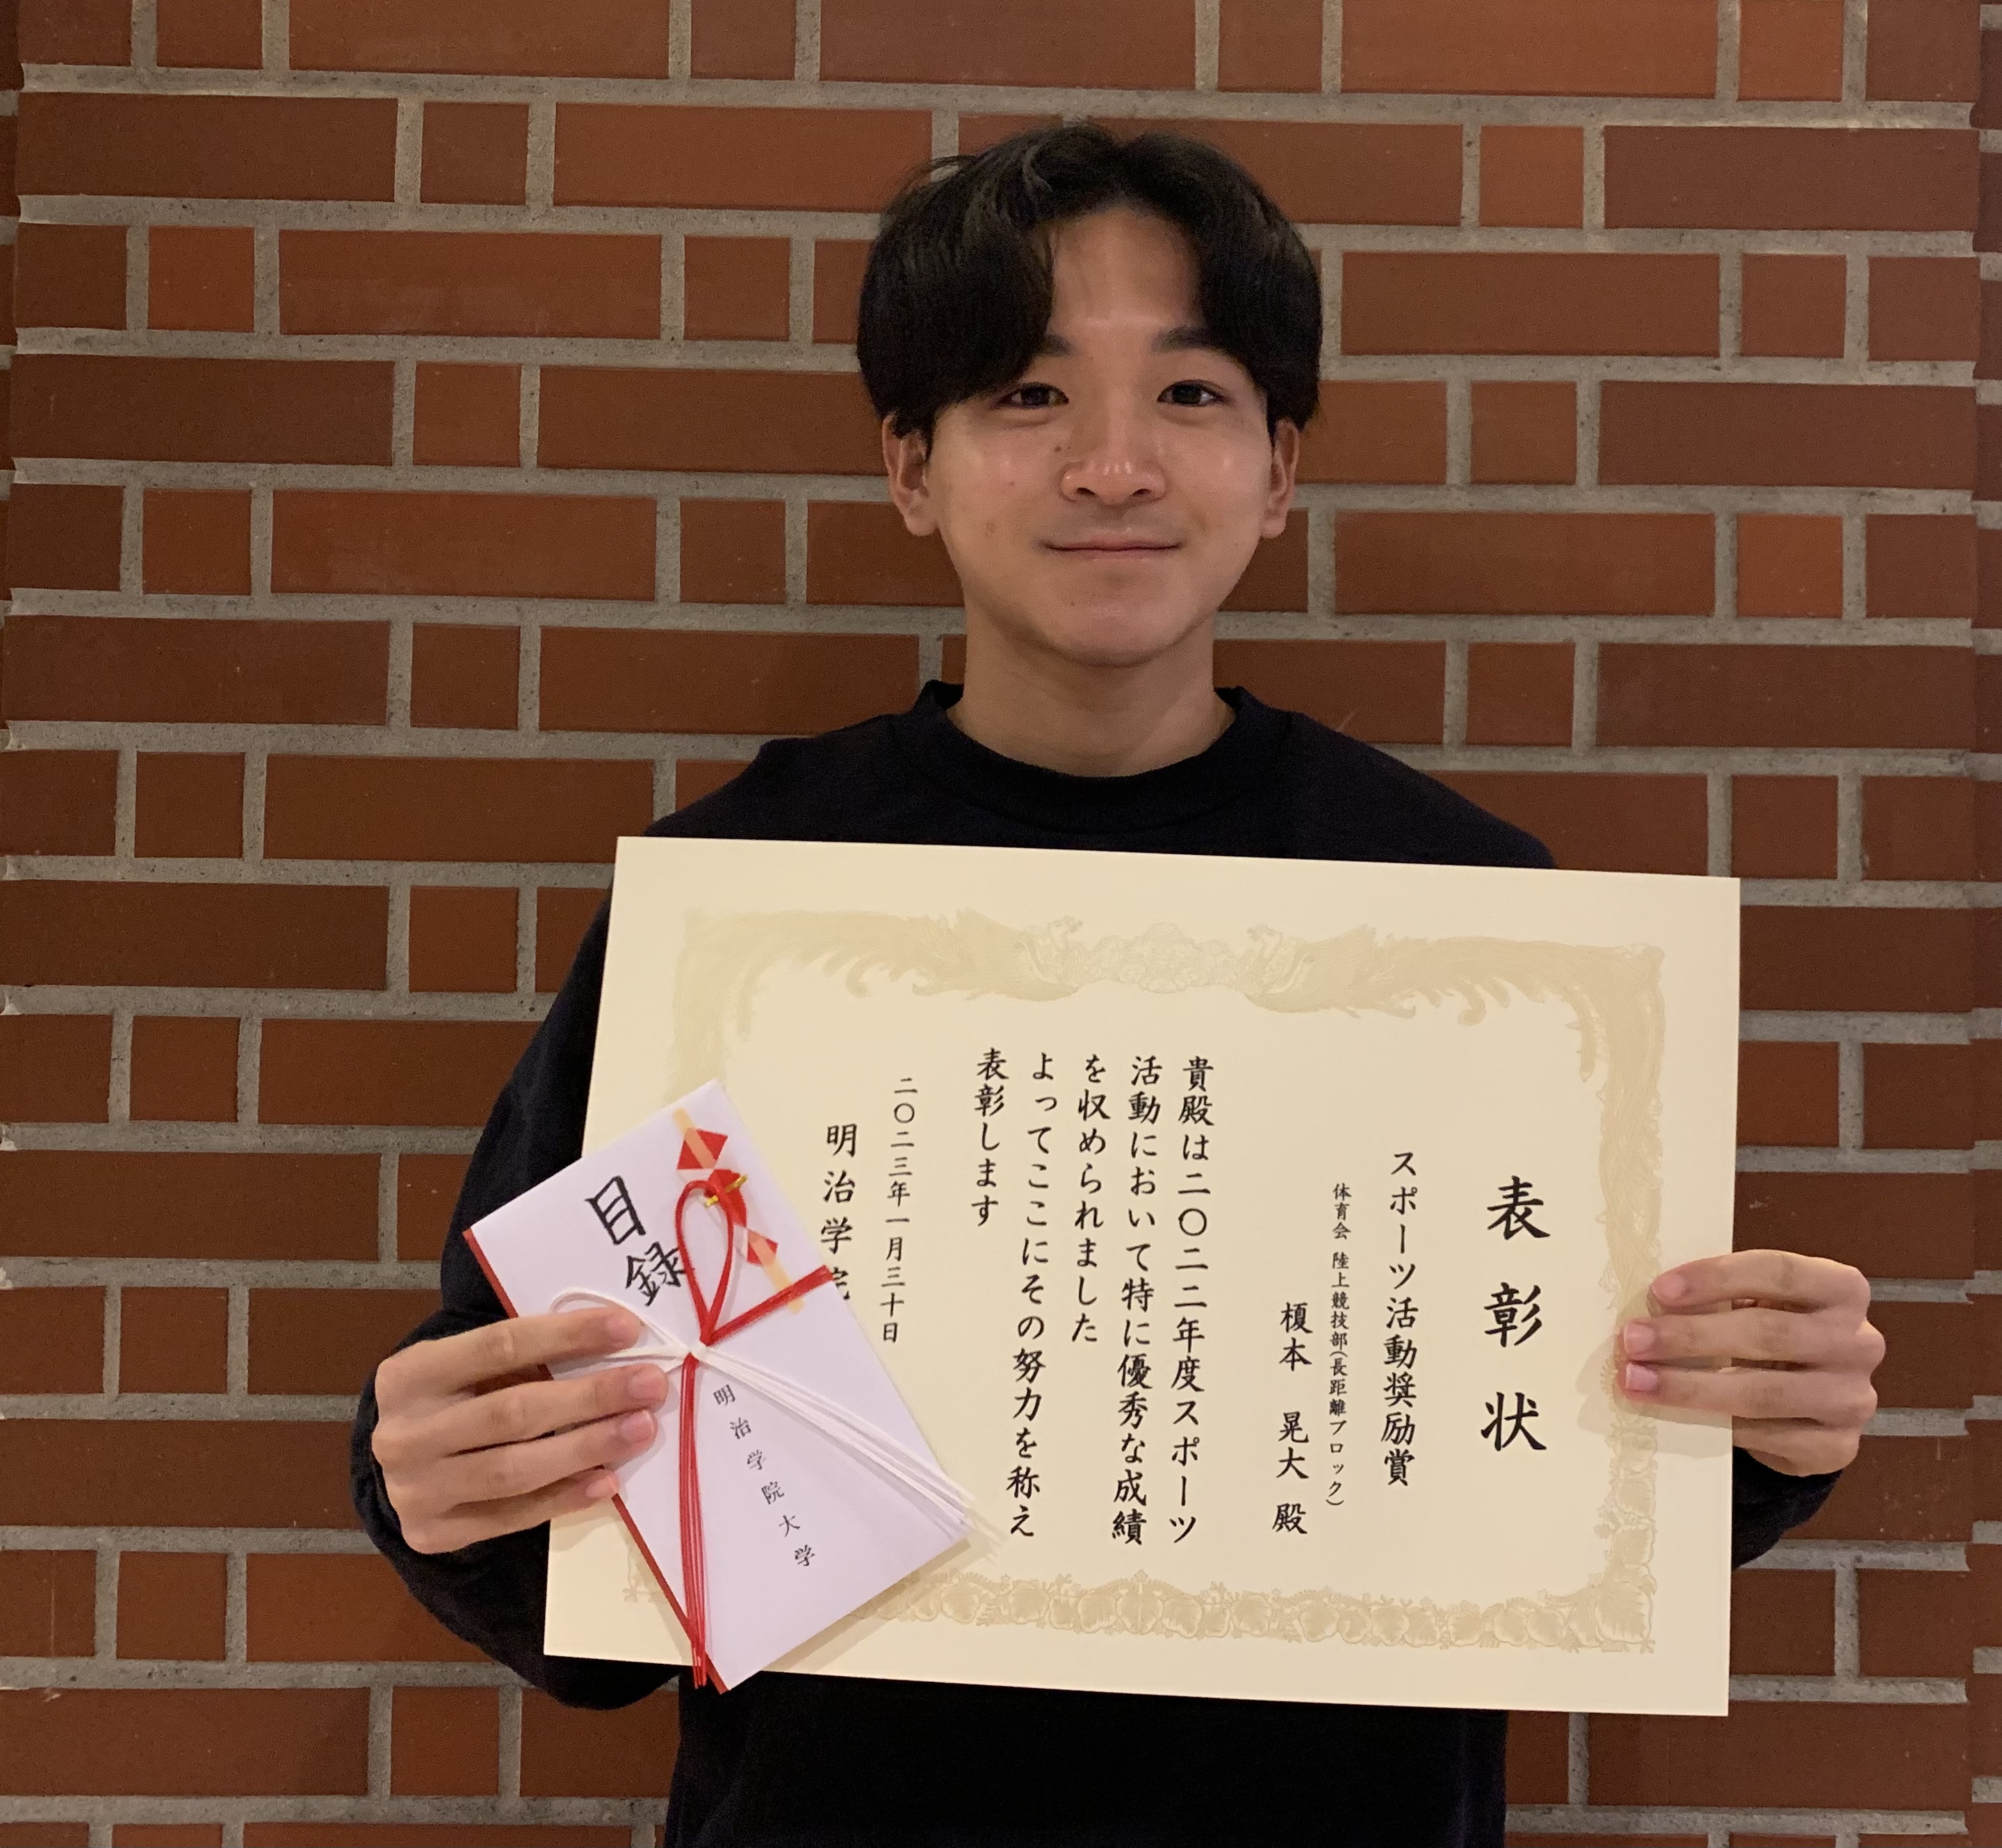 表彰状
スポーツ活動奨励賞
体育会 陸上競技部(長距離ブロック)
榎本 晃大 殿
貴殿は二〇二二年度スポーツ
活動において特に優秀な成績
を収められました
よってここにその努力を称え
表彰します
二〇二三年一月三十日
明治学院
目録
明治学院大学